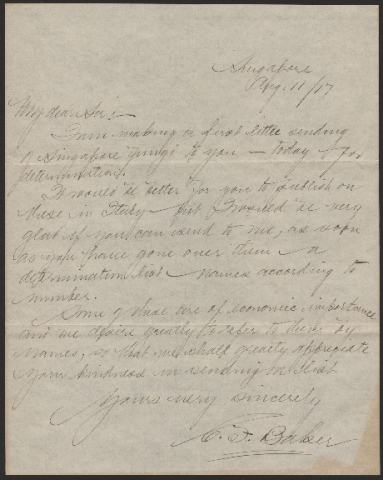 Singapore
Aug. 11/17
My dear Sir:-
I am making a first little sending
of Singapore fungi to you — today — for
determination.
It would be better for you to publish on
these in Italy but I would be very
glad if you can send to me, as soon
as you have gone over them a
determination list names according to
number.
Some of these are of economic importance
and we desire greatly to refer to them by
names, so that we shall greatly appreciate
your kindness in sending on list
Yours very sincerely
C. F. Baker